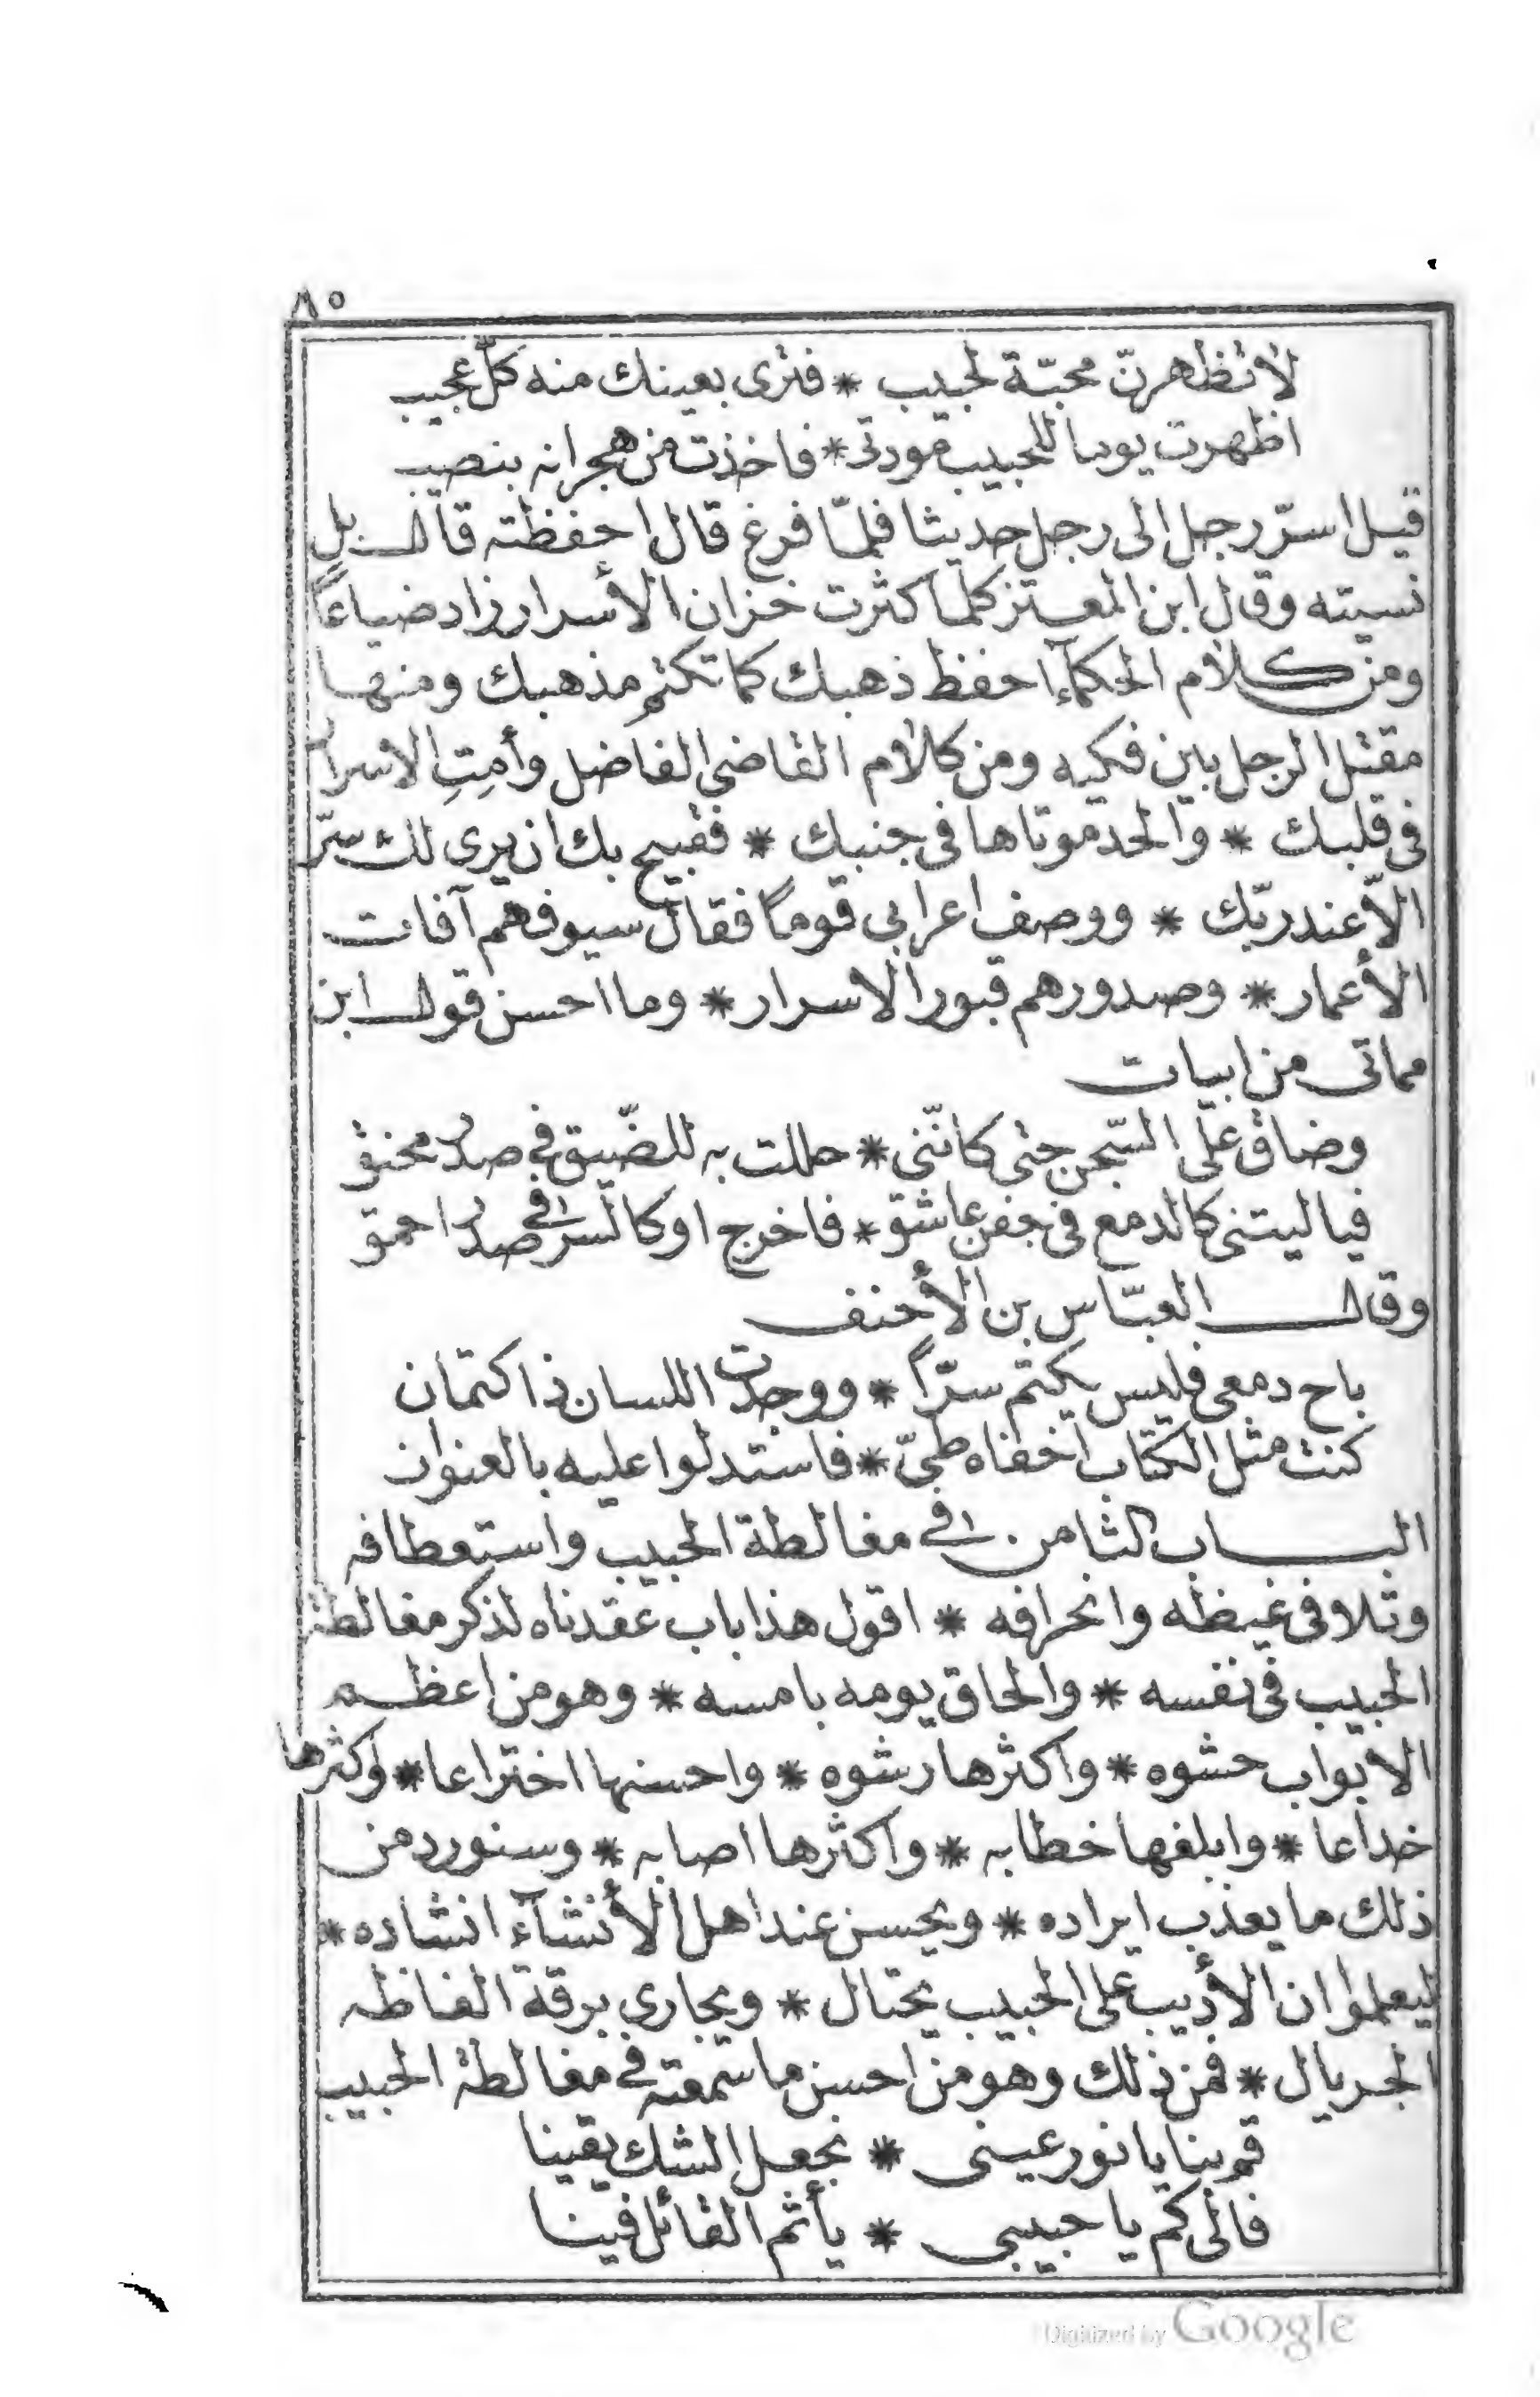 ٨٥
لا تظهرنّ محبّة لحبيب * فترى بعينك منه كلّ عجيب
اظهرت يوما للحبيب مودتى * فاخذت من هجرانه بنصيب
قيل اسرّ رجل الى رجل حديثا فلمّا فرغ قال احفظته قال بل
نسيته وقال ابن المعتز كلما كثرت خزان الأسرار زاد ضياعاً
ومن كلام الحكمآء احفظ ذهبك كما تكتم مذهبك ومنها
مقتل الرجل بين فكيه ومن كلام القاضى الفاضل وأمِتِ الاسرار
فى قلبك * والحد موتاها فى جنبيك * فقبيح بك ان يرى لك سرّ
الاّ عند ربّك * ووصف اعرابى قوماً فقال سيوفهم آفات
الأعمار * وصدورهم قبور الاسرار * وما احسن قول ابن
مماتى من ابيات
وضاق علىّ السّجن حتى كانّنى * حللت به للضّيق فى صدر محنق
فيا ليتنى كالدمع فى جفن عاشق * فاخرج او كالسر فى صدر احمق
وقال العبّاس بن الأحنف
باح دمعى فليس يكتم سرّاً * ووجدت اللسان ذا كتمان
كنت مثل الكتاب اخفاه طىّ * فاستدلوا عليه بالعنوان
الباب الثامن فى مغالطة الحبيب واستعطافه
وتلافى غيظه وانحرافه * اقول هذا باب عقدناه لذكر مغالطة
الحبيب فى نفسه * والحاق يومه بامسه * وهو من اعظم
الابواب حشوه * واكثرها رشوه * واحسنها اختراعا * واكثرها
خداعا * وابلغها خطابه * واكثرها اصابه * وسنورد من
ذلك ما يعذب ايراده * ويحسن عند اهل الأنشآء انشاده *
ليعلموا ان الأديب على الحبيب يحتال * ويجارى برقة الفاظه
الجريال * فمن ذلك وهو من احسن ما سمعته فى مغالطة الحبيب
قم بنا يا نور عينى * نجعل الشك يقينا
فالى كم يا حبيبى * يأثم القائل فينا
Digitized by Google